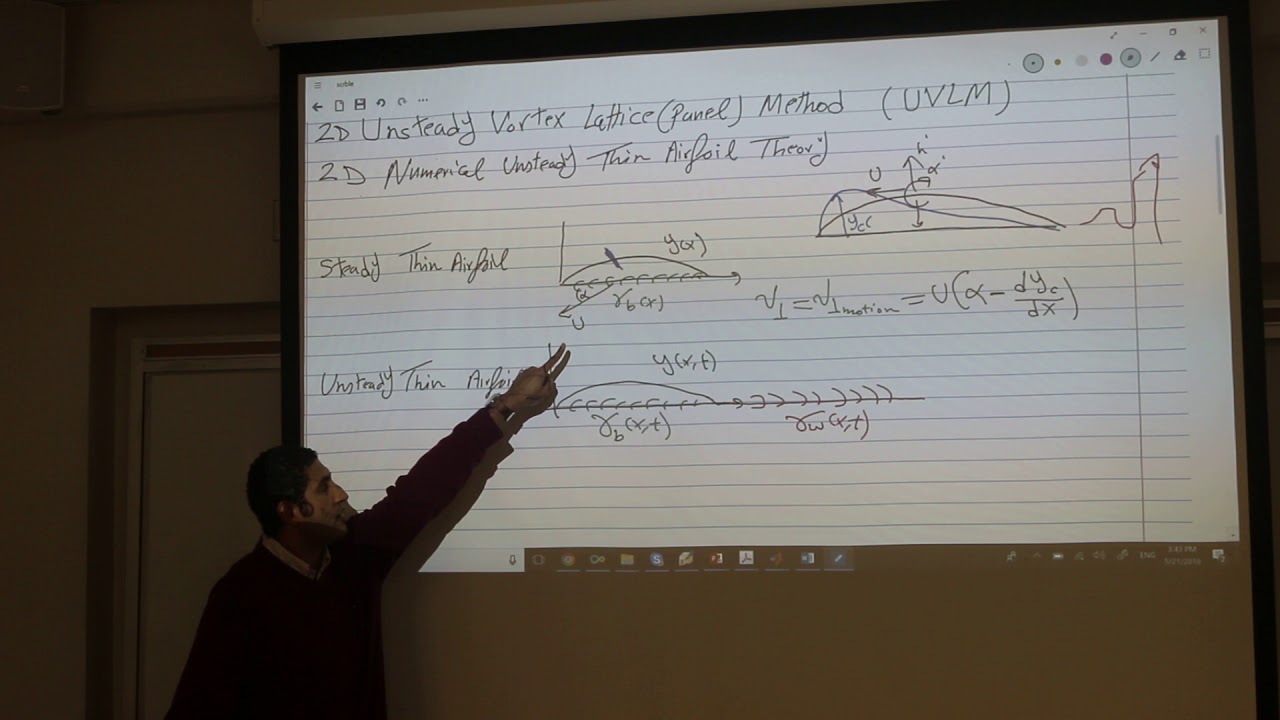 scrble
2D Unsteady Vortex Lattice (Panel) Method (UVLM)
2D Numerical Unsteady Thin Airfoil Theory
ḣ
α̇
U
y_c
Steady Thin Airfoil
y(x)
α
γ_b(x)
U
v_⊥ = v_⊥motion = U(α - dy_c/dx)
Unsteady Thin Airfoil
y(x,t)
γ_b(x,t)
γ_w(x,t)
ENG
3:43 PM
5/21/2018